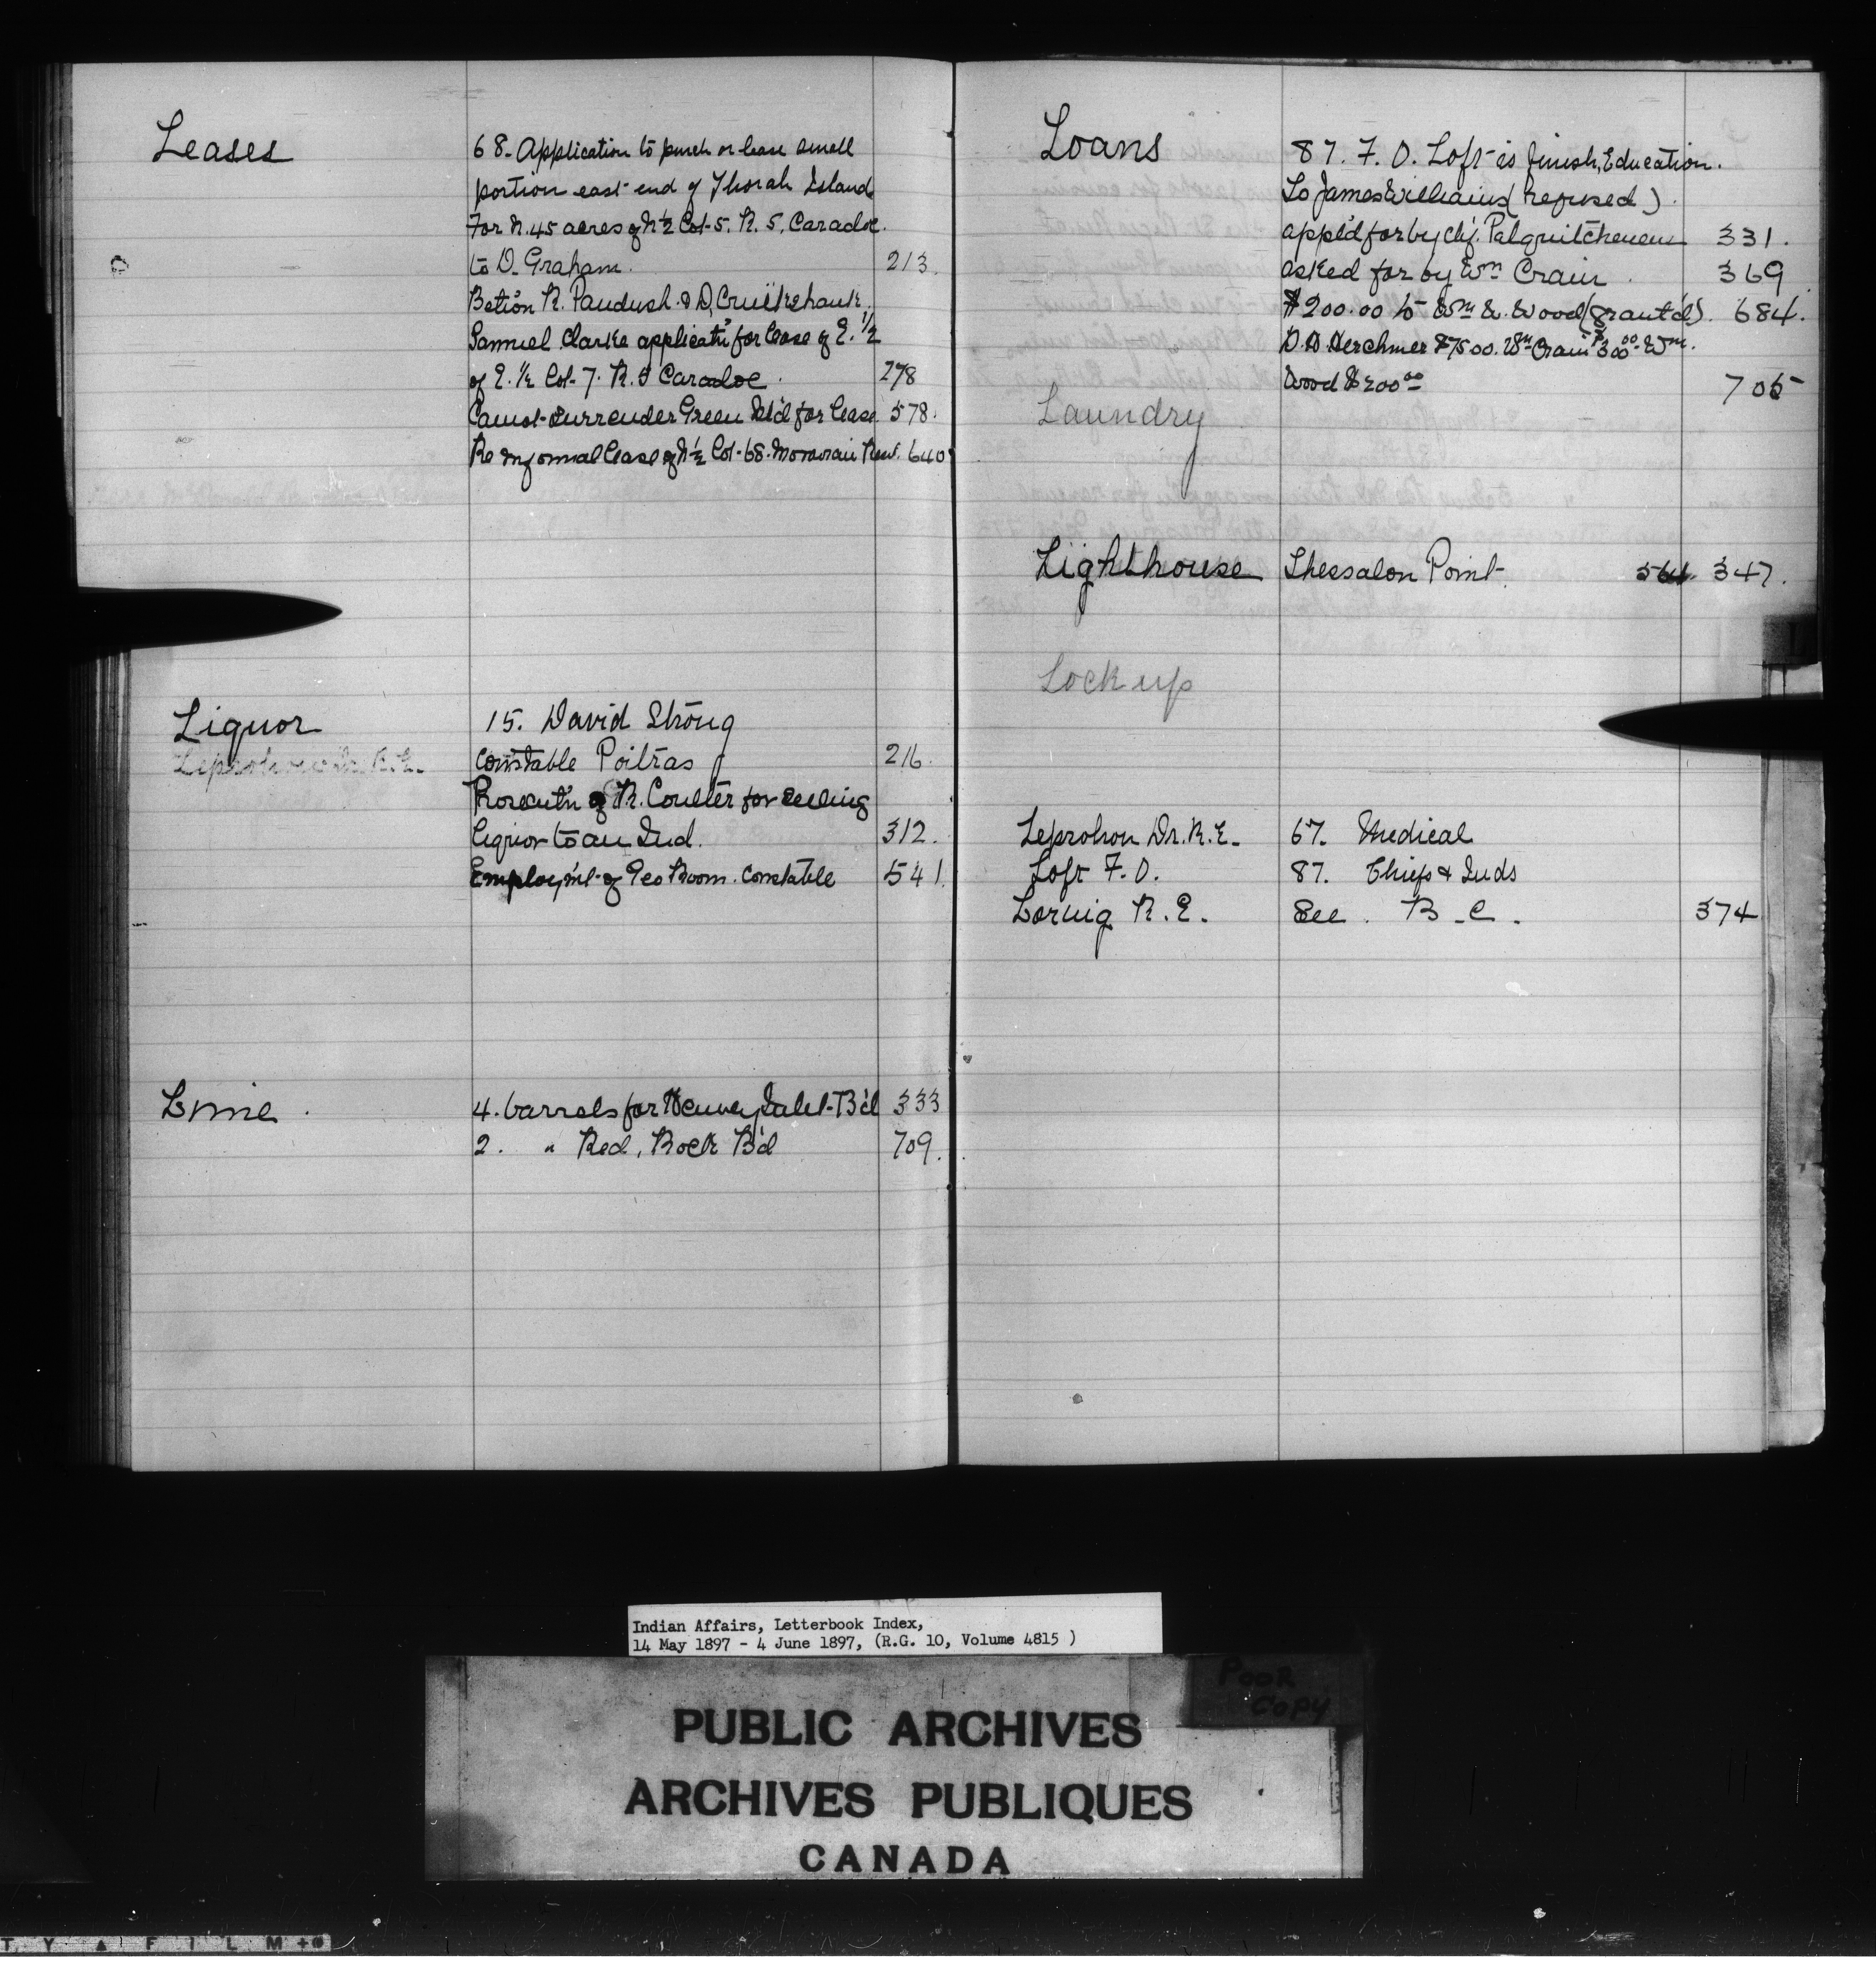 Leases
68. Application to purch or lease small
portion east end of Thorah Island
For N. 45 acres of N ½ Lot 5. R. 5. Caradoc.
to D. Graham. 213.
Samuel Clarke applicatn for lease of E. ½
of E. ½ Lot 7. R. 5 Caradoc. 278
Cannot surrender Green Isl'd for lease. 578.
Re informal lease of N ½ Lot 68. Moravian Res. 640
Liquor
15. David Strong
Leprohon Dr. R. E.
Constable Poitras 216.
Prosecut'n of R. Coulter for selling
liquor to an Ind. 312.
Employm't of Geo Room. constable 541.
Lime.
4. barrels for Henvey Inlet B'd 333
2. " Red, Rock B'd 709.
Loans
87. F. O. Loft to finish, Education.
To James Williams (refused).
appl'd for by Chf. 331.
asked for by Wm Crain. 369
$200.00 to Wm W. Wood (grant'd). 684.
D. D. Herchmer $75.00. Wm Crain $300.00 Wm.
Wood $200.00 705
Laundry
Lighthouse Thessalon Point. 564. 347.
Lock up
Leprohon Dr. R. E. 67. Medical
Loft F. O. 87. Chiefs & Inds
Loring R. E. See. B. C. 374
Indian Affairs, Letterbook Index,
14 May 1897 - 4 June 1897, (R.G. 10, Volume 4815 )
POOR
COPY
PUBLIC ARCHIVES
ARCHIVES PUBLIQUES
CANADA
T Y ▲ F I L M +